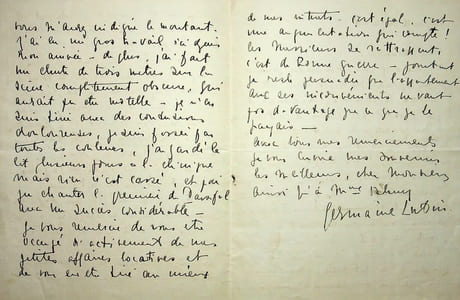 vous m'avez indiqué le montant.
J'ai eu un gros travail ici depuis
mon arrivée - de plus, j'ai fait
une chute de trois mètres sur la
scène complètement obscure, qui
aurait pu être mortelle - je m'en
suis tirée avec des contusions
douloureuses, je suis passée par
toutes les couleurs, j'ai gardé le
lit plusieurs jours à la clinique
mais rien n'est cassé, et j'ai
pu chanter la première de Parsifal
avec un succès considérable -
je vous remercie de vous être
occupé si activement de mes
petites affaires locatives et
de vous en être tiré au mieux
de mes intérêts. C'est égal, c'est
une augmentation qui compte !
les Messieurs se rattrapent,
c'est de bonne guerre - pourtant
je reste persuadée que l'appartement
avec ses inconvénients ne vaut
pas davantage que ce que je
payais -
avec tous mes remerciements
je vous envoie mes souvenirs
les meilleurs, cher Monsieur
ainsi qu'à Mme
Germaine Lubin.